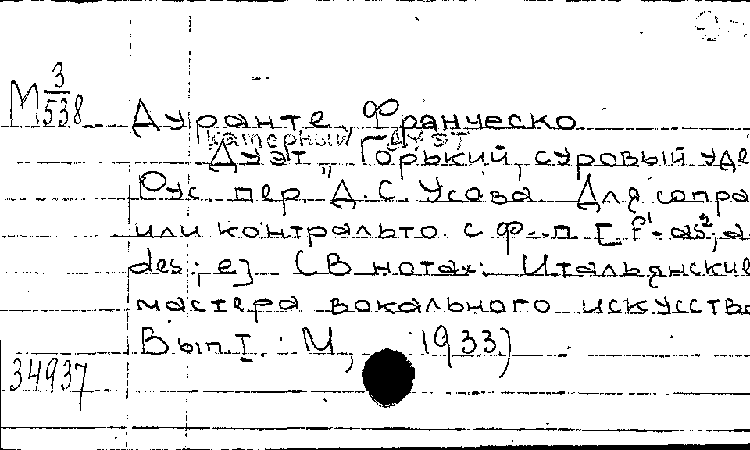 М 3/538
Дуранте Франческо
Камерный дуэт
Дуэт "Горький, суровый уде
Рус. пер. Д.С. Усова. Для сопра
или контральто с ф-п. [f¹-as²; a
des; e] (В нотах: Итальянские
мастера вокального искусства
Вып. I. М., 1933.)
34937